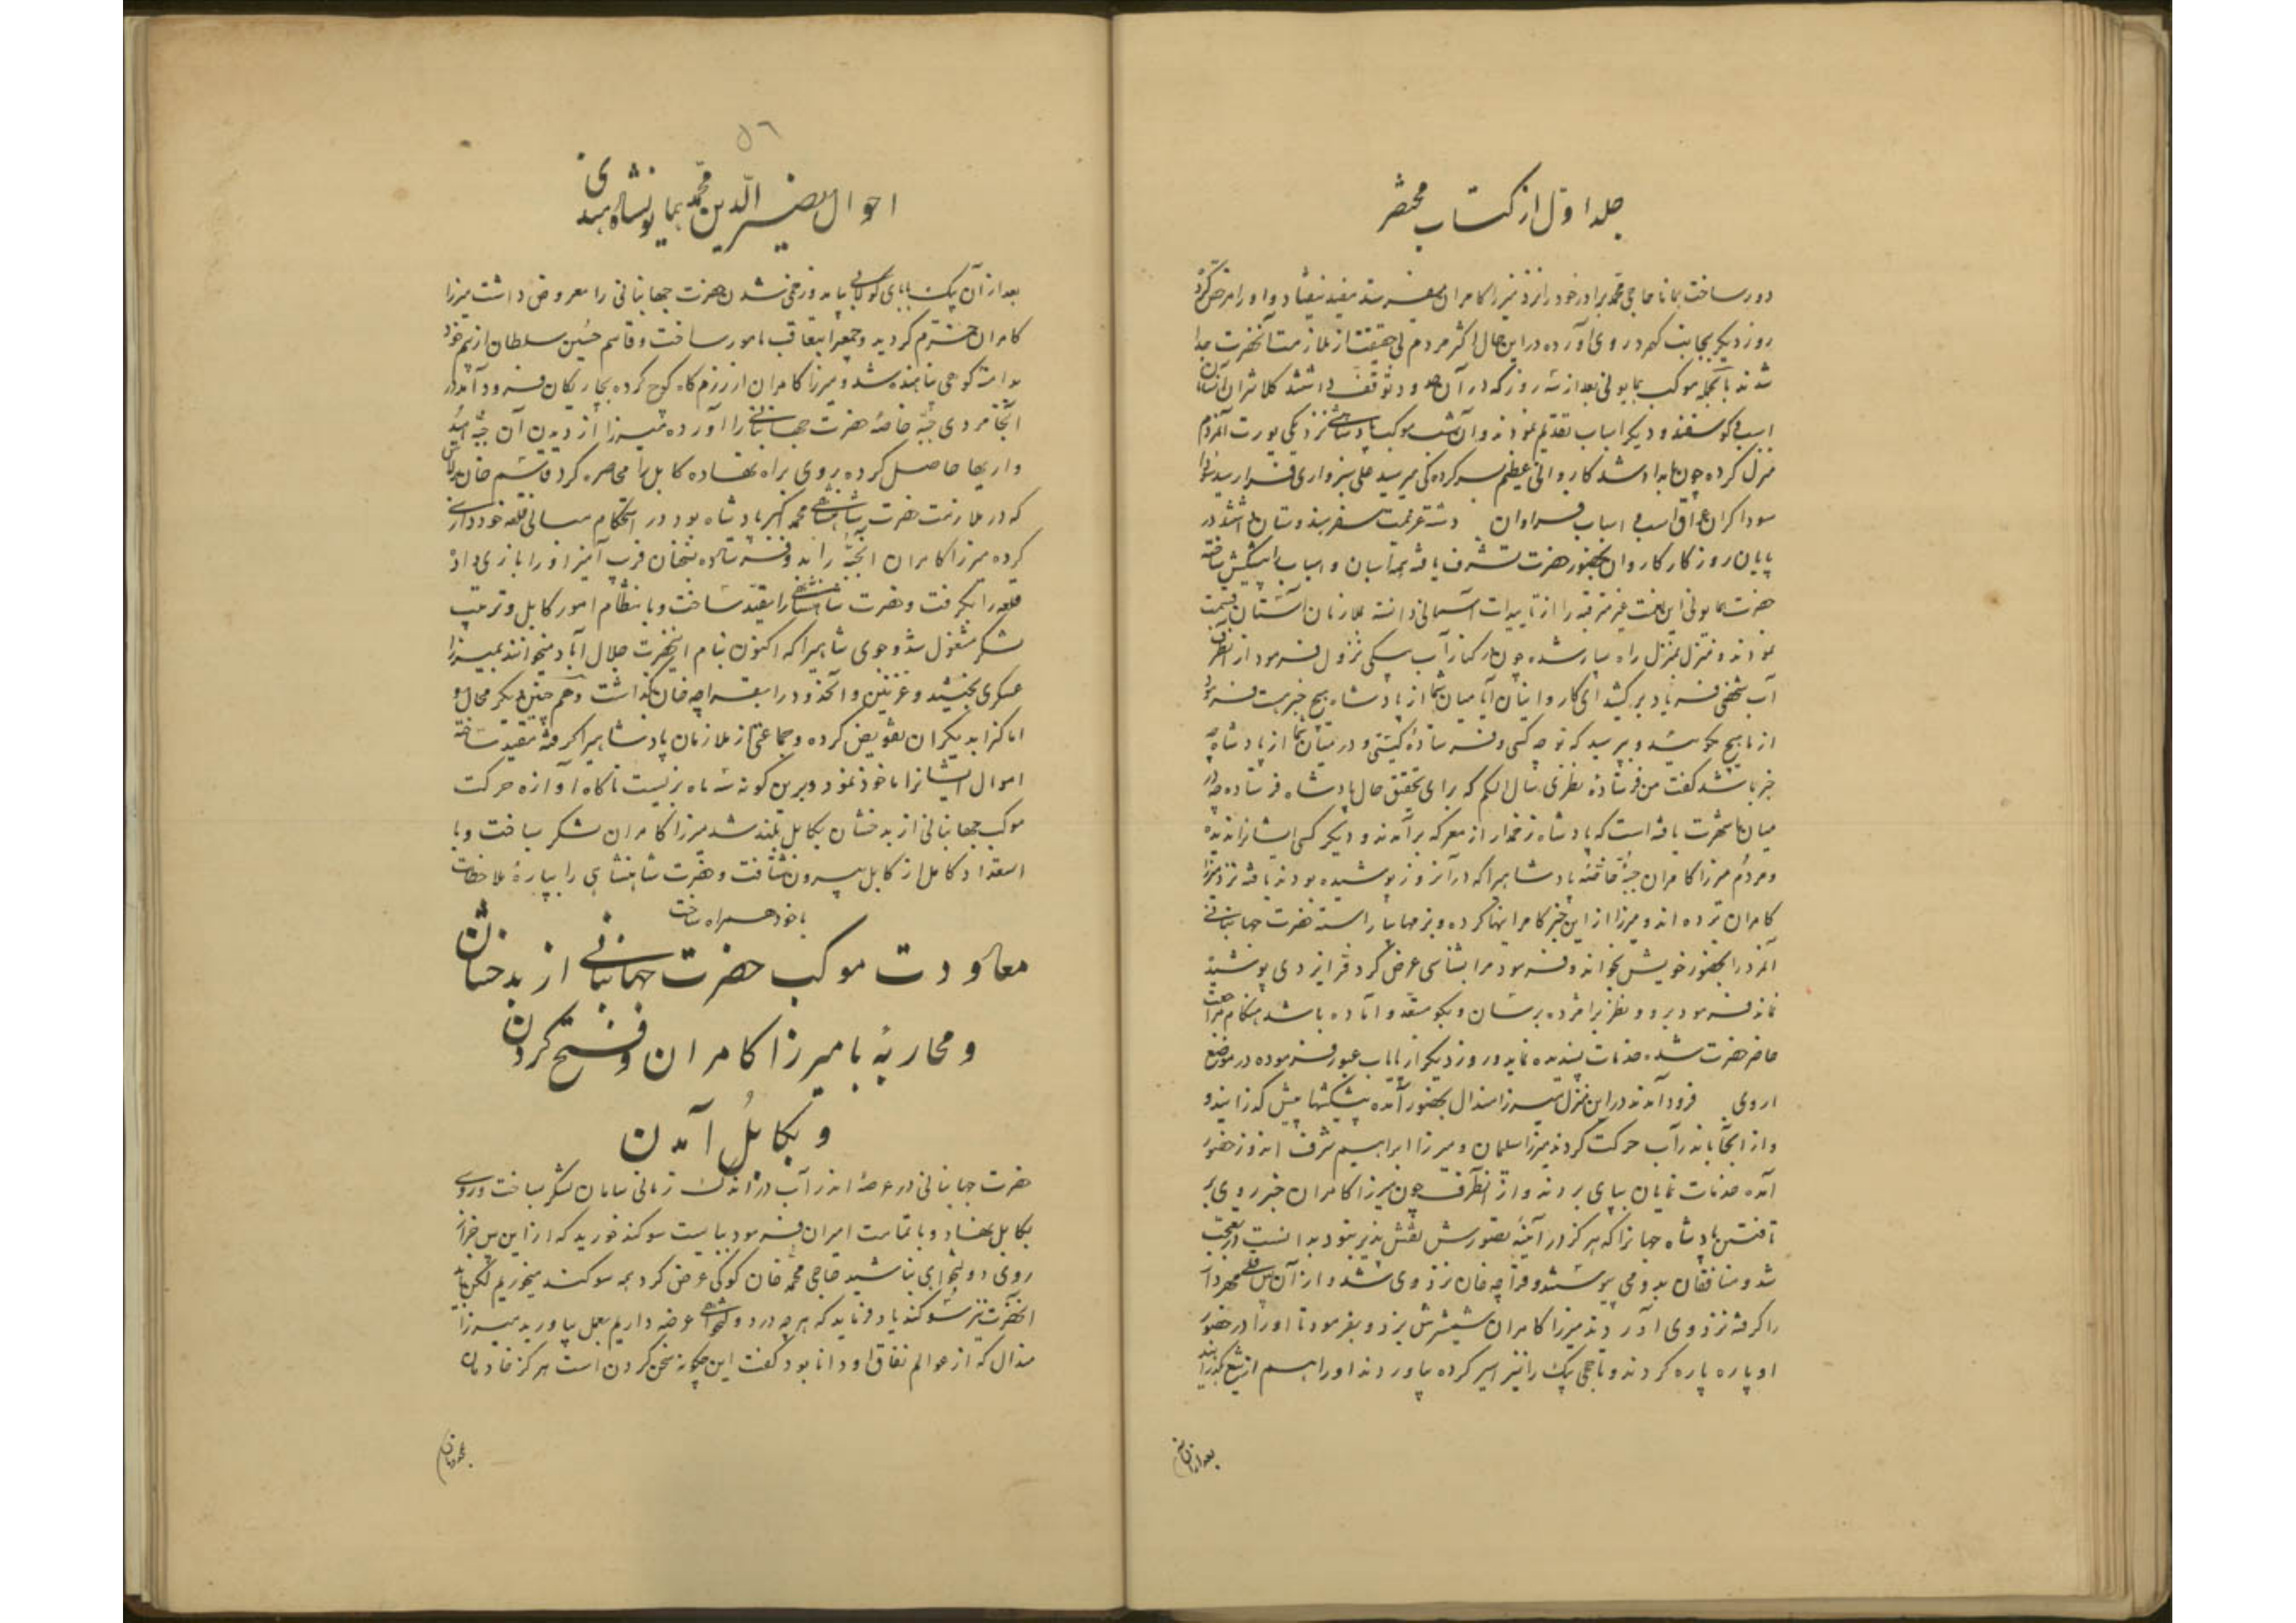 جلد اول از کتاب مختصر
دور ساخت همانا حاجی محمد برادر خود را نزد میرزا کامران بفرستد مفید نیفتاد و او را مرخص کرد
روز دیگر بجانب کهمرد روی آورده در این حال اکثر مردم بی حقیقت از ملازمت آنحضرت جدا
شدند بالجمله موکب همایونی بعد از سه روز که در آن حدود توقف داشتند کلانتران
اسب و گوسفند و دیگر اسباب تقدیم نمودند و آن شب موکب پادشاهی نزدیکی یورت آنمردم
منزل کرده چون بامداد شد کاروانی عظیم بسرکردگی میر سید علی سبزواری فرا رسید
سوداگران عراق اسب و اسباب فراوان داشته عزیمت سفر هندوستان داشتند در
پایان روز کار کاروان بحضور حضرت تشرف یافته همه اسبان و اسباب را پیشکش ساخته
حضرت همایونی این نعمت غیر مترقبه را از تاییدات آسمانی دانسته ملازمان آستان قسمت
نمودند و منزل بمنزل راه سپار شده چون در کنار آب سنگی نزول فرمود از آنطرف
آب شخصی فریاد بر کشید ای کاروانیان آیا میان شما از پادشاه هیچ خبر هست فرمود
از ما هیچ مگوئید و بپرسید که تو چه کسی و فرستاده کیستی و در میان شما از پادشاه چه
خبر باشد گفت من فرستاده نظری سال النکم که برای تحقیق حال پادشاه فرستاده چه در
میان ما شهرت یافته است که پادشاه زخمدار از معرکه برآمدند و دیگر کسی ایشانرا ندیده
و مردم میرزا کامران جبه خاصه پادشاهیرا که در آنروز پوشیده بودند یافته نزد میرزا
کامران برده اند و میرزا از این خبر کامرانیها کرده و بزمها بیاراسته حضرت جهانبانی
آنمرد را بحضور خویش بخواند و فرمود مرا بشناسی عرض کرد فر ایزدی پوشیده
نماند فرمود برو و نظری را مژده برسان و بگو مستعد و آماده باشد هنگام مراجعت
حاضر حضرت شده خدمات پسندیده نماید و روز دیگر از پایاب عبور فرموده در موضع
اروی فرود آمدند در این منزل میرزا هندال بحضور آمده پیشکشها پیش گذرانید و
و از آنجا باندرآب حرکت کردند میرزا سلیمان و میرزا ابراهیم شرف اندوز حضور
آمده خدمات نمایان بپای بردند و از آنطرف چون میرزا کامران خبر روی بر
تافتن پادشاه جهانرا که هرگز در آینه تصورش نقش پذیر نبود بدانست در تعجب
شد و منافقان بدو می پیوستند و قراچه خان نزد وی شد و از آن پس قلی مهردار
را گرفته نزد وی آوردند میرزا کامران شمشیرش بزد و بفرمود تا او را در حضور
او پاره پاره کردند و تاجی بیک را نیز اسیر کرده بیاوردند او را هم از تیغ بگذرانید
بعد از آن
۵٦
احوال نصیر الدین محمد همایونشاه هندی
بعد از آن بیک بابای کولابی بیامد و زخمی شدن حضرت جهانبانی را معروض داشت میرزا
کامران خرم گردید و جمعیرا بتعاقب مامور ساخت و قاسم حسین سلطان از بیم خود
بدامنه کوهی پناهنده شد و میرزا کامران از رزم گاه کوچ کرده بچاریکان فرود آمد در
آنجا مردی جبه خاصه حضرت جهانبانی را آورده میرزا از دیدن آن جبه
واریها حاصل کرده روی براه نهاده کابل را محاصره کرد قاسم خان برلاس
که در ملازمت حضرت شاهنشاهی محمد اکبر پادشاه بود در استحکام مبانی قلعه خودداری
کرده میرزا کامران آنجبه را بدو فرستاده بسخنان فریب آمیز او را بازی داد
قلعه را بگرفت و حضرت شاهنشاهی را مقید ساخت و بانتظام امور کابل و ترتیب
لشکر مشغول شد و جوی شاهیرا که اکنون بنام آنحضرت جلال آباد میخوانند بمیرزا
عسکری بخشید و غزنین و آنحدود را بقراچه خان گذاشت و هم چنین دیگر محال و
اماکن را بدیگران تفویض کرده و جماعتی از ملازمان پادشاهیرا گرفته مقید ساخته
اموال ایشانرا ماخوذ نمود و برین گونه سه ماه بزیست ناگاه آوازه حرکت
موکب جهانبانی از بدخشان بکابل بلند شد میرزا کامران لشکر بساخت و با
استعداد کامل از کابل بیرون شتافت و حضرت شاهنشاهی را بپاره ملاحظات
با خود همراه ساخت
معاودت موکب حضرت جهانبانی از بدخشان
و محاربه با میرزا کامران و فتح کردن
و بکابل آمدن
حضرت جهانبانی در عرصه اندرآب در اندک زمانی سامان لشکر ساخت و روی
بکابل نهاد و با تمامت امیران فرمود ببایست سوگند خورید که از این پس جز از
روی دولتخواهی نباشید حاجی محمد خان کوکی عرض کرد همه سوگند میخوریم لکن باید
آنحضرت نیز سوگند یاد فرماید که هر چه در دولتخواهی عرضه داریم بعمل بیاورید میرزا
هندال که از عوالم نفاق او دانا بود گفت این چگونه سخن کردن است هرگز خادمان